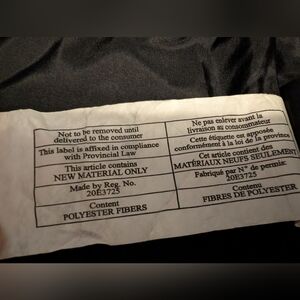 Not to be removed until
delivered to the consumer
This label is affixed in compliance
with Provincial Law
This article contains
NEW MATERIAL ONLY
Made by Reg. No.
20E3725
Content
POLYESTER FIBERS
Ne pas enlever avant la
livraison au consommateur
Cette étiquette est apposée
conformément à la loi de la province
Cet article contient des
MATÉRIAUX NEUFS SEULEMENT
Fabriqué par N° de permis:
20E3725
Contenu
FIBRES DE POLYESTER